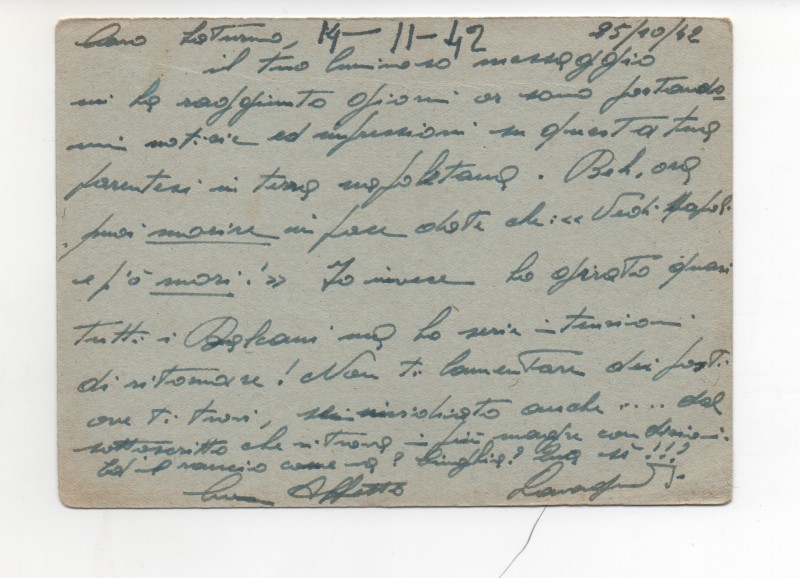 Caro Saturno, 14-11-42 25/10/42
il tuo luminoso messaggio
mi ha raggiunto giorni or sono portando-
mi notizie ed impressioni su questa tua
parentesi in terra napoletana. Beh, ora
puoi morire in pace dato che: « Vedi Napoli
e p'ò mori!» Io invece ho girato quasi
tutti i Balcani ma ho serie intenzioni
di ritornare! Non ti lamentare dei posti
ove ti trovi, sei invidiato anche .... dal
sottoscritto che si trova in più magre condizioni.
Ed il rancio come va? Qua sì!!!
Con Affetto